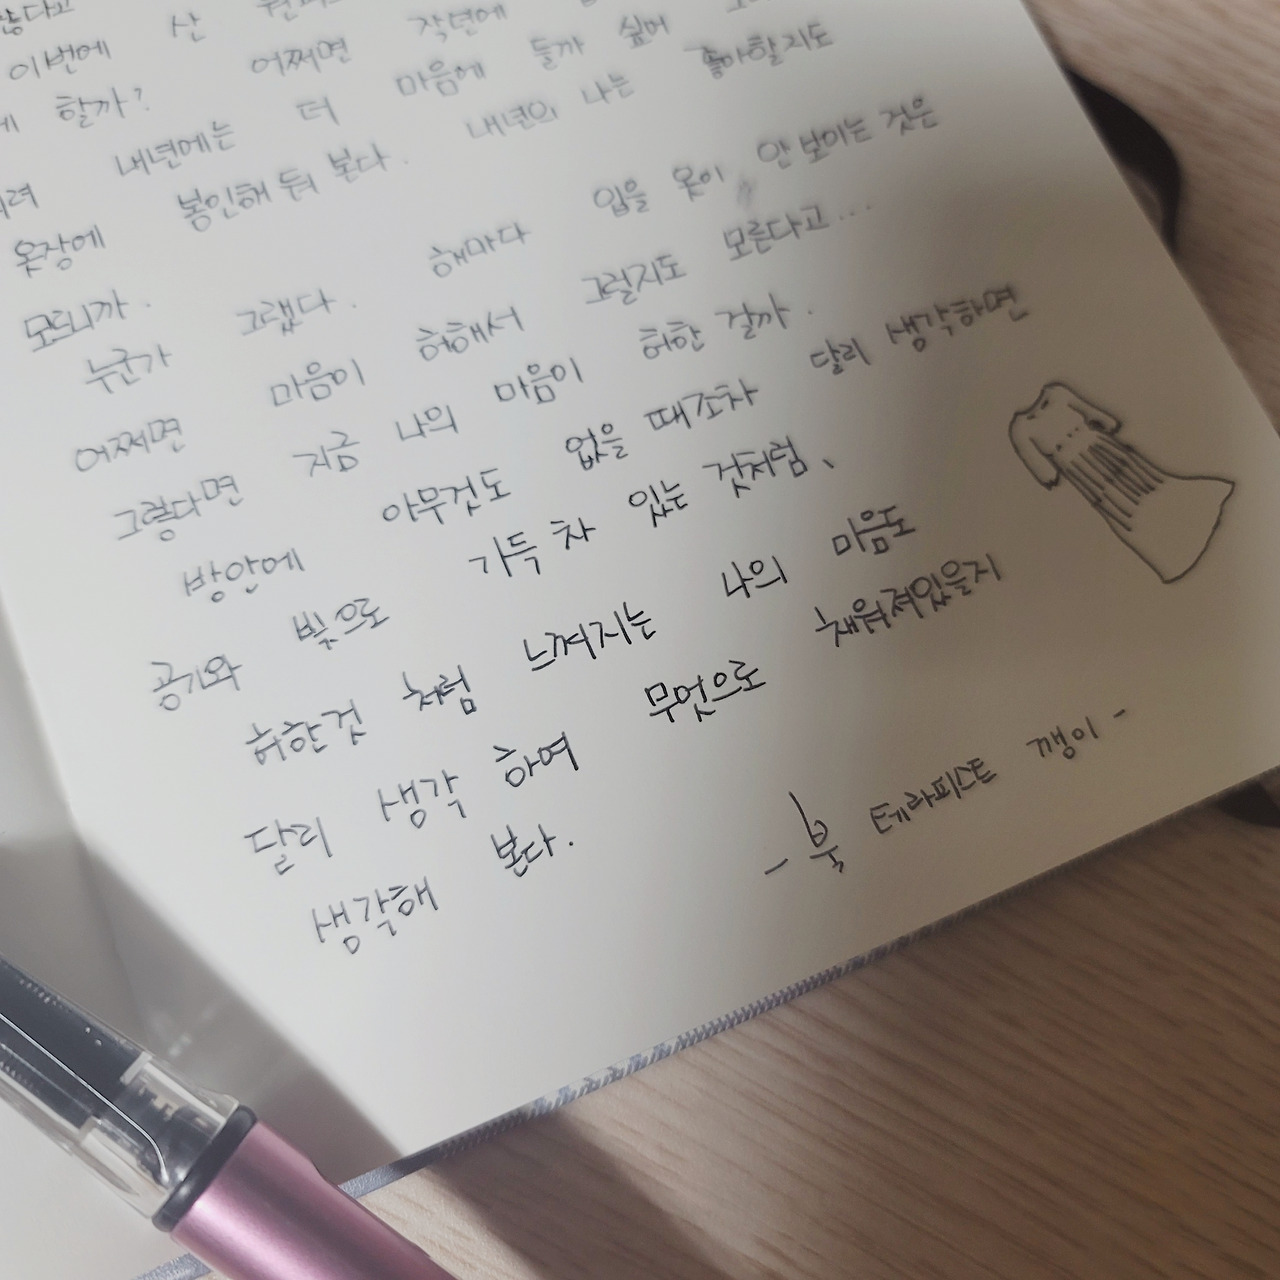 않다고
이번에 산
할까? 어쩌면 작년에
내년에는 더 마음에 들까 싶어
옷장에 봉인해 둬 본다. 내년의 나는 좋아할지도
모르니까.
누군가 그랬다. 해마다 입을 옷이 안 보이는 것은
어쩌면 마음이 허해서 그럴지도 모른다고...
그렇다면 지금 나의 마음이 허한 걸까.
방안에 아무것도 없을 때조차 달리 생각하면
공기와 빛으로 가득 차 있는 것처럼,
허한것 처럼 느껴지는 나의 마음도
달리 생각 하여 무엇으로 채워져있을지
생각해 본다.
- 북 테라피스트 깽이 -